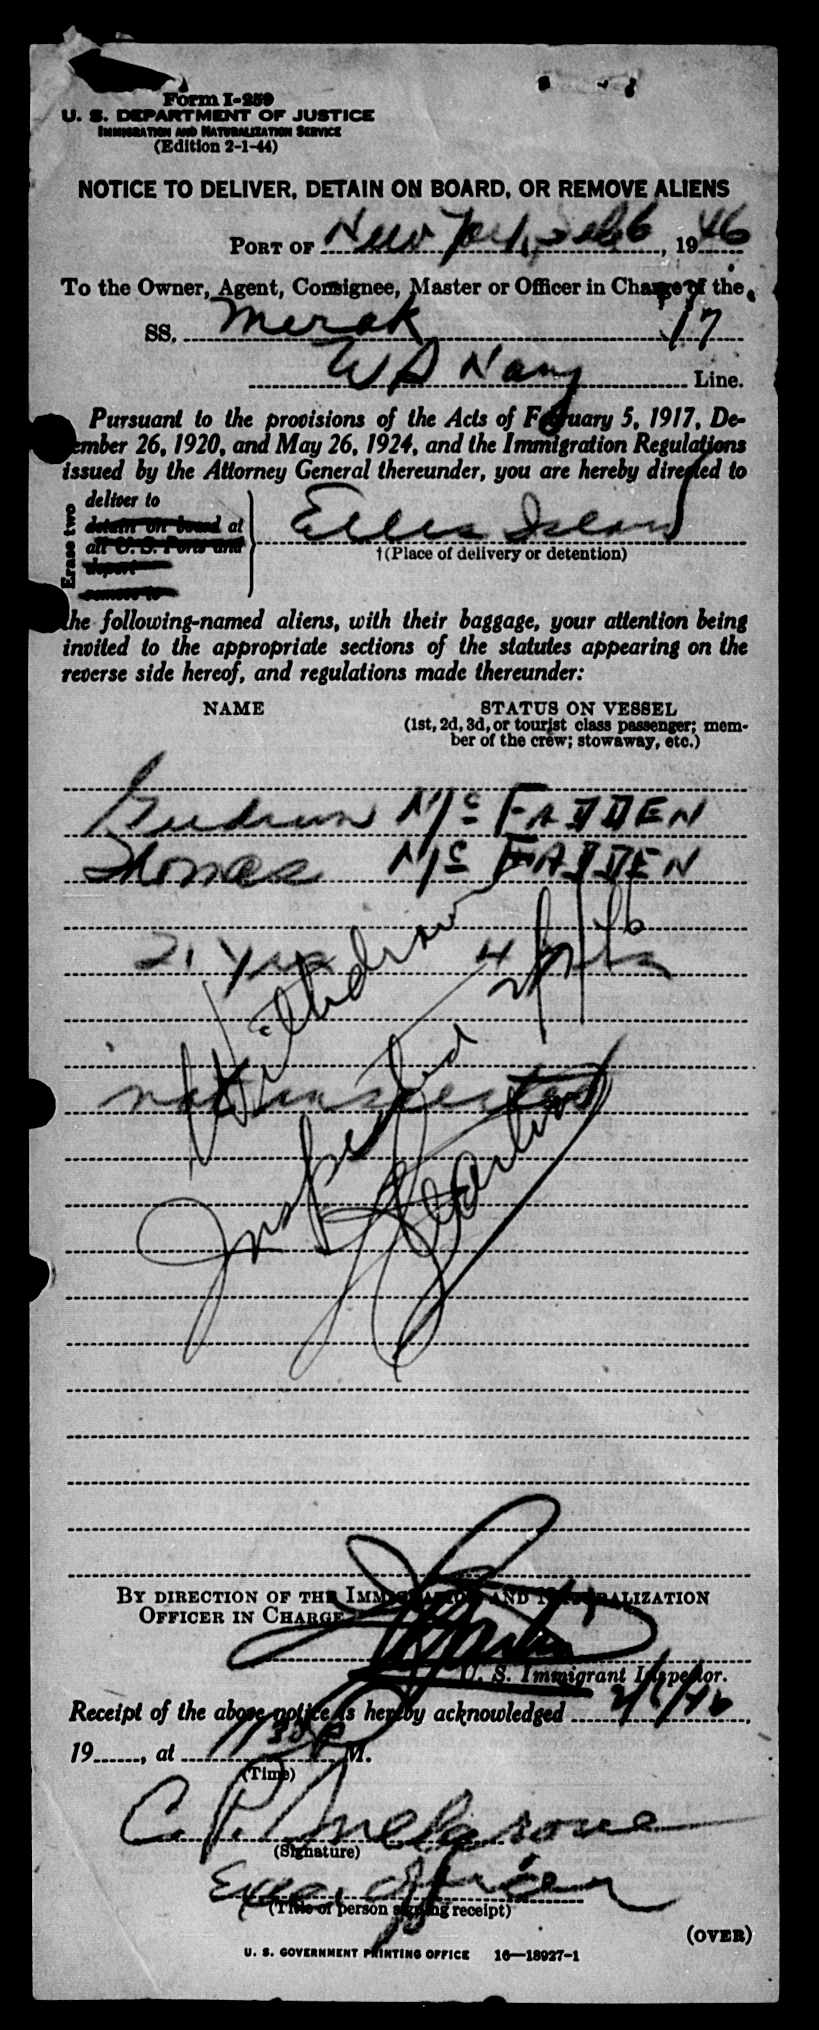 Form I-259
U. S. DEPARTMENT OF JUSTICE
IMMIGRATION AND NATURALIZATION SERVICE
(Edition 2-1-44)
NOTICE TO DELIVER, DETAIN ON BOARD, OR REMOVE ALIENS
PORT OF New York, Feb 6, 1946
To the Owner, Agent, Consignee, Master or Officer in Charge of the
SS. Merak 17
Line.
Pursuant to the provisions of the Acts of February 5, 1917, De-
cember 26, 1920, and May 26, 1924, and the Immigration Regulations
issued by the Attorney General thereunder, you are hereby directed to
Erase two
deliver to
detain on board at
all U. S. Ports and
deport
remove to
Ellis Island
†(Place of delivery or detention)
the following-named aliens, with their baggage, your attention being
invited to the appropriate sections of the statutes appearing on the
reverse side hereof, and regulations made thereunder:
NAME STATUS ON VESSEL
(1st, 2d, 3d, or tourist class passenger; mem-
ber of the crew; stowaway, etc.)
Gudrun McFADDEN
Thomas McFADDEN
21 Yrs 4
Withdrawn
not inspected
Inspected
BY DIRECTION OF THE IMMIGRATION AND NATURALIZATION
OFFICER IN CHARGE
U. S. Immigrant Inspector.
Receipt of the above notice is hereby acknowledged 2/6/46,
19, at 730 P M.
(Time)
C. P.
(Signature)
Exec. Officer
(Title of person signing receipt)
(OVER)
U. S. GOVERNMENT PRINTING OFFICE 16—18927-1